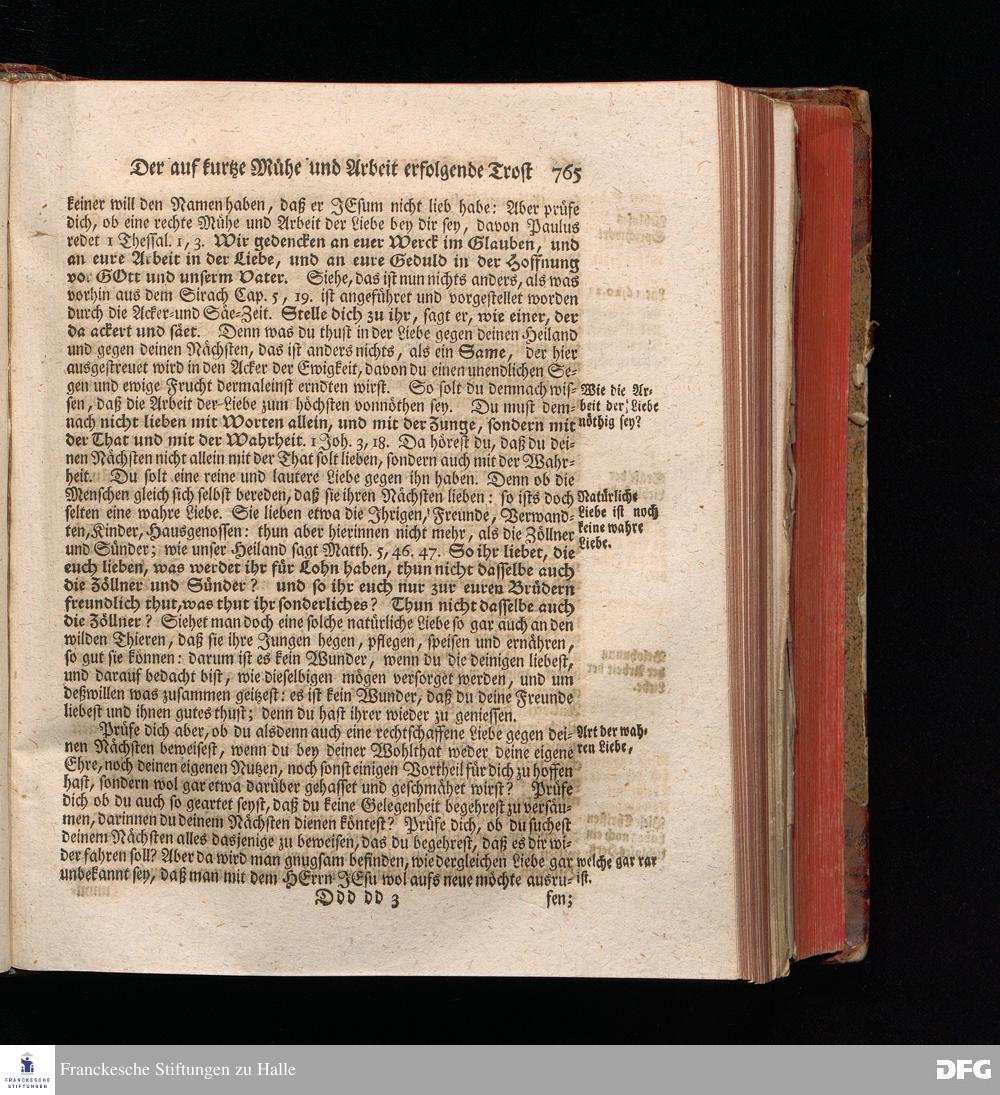 Der auf kurtze Mühe und Arbeit erfolgende Trost 765
keiner will den Namen haben, daß er JEsum nicht lieb habe: Aber prüfe
dich, ob eine rechte Mühe und Arbeit der Liebe bey dir sey, davon Paulus
redet 1 Thessal. 1, 3. Wir gedencken an euer Werck im Glauben, und
an eure Arbeit in der Liebe, und an eure Geduld in der Hoffnung
vor GOtt und unserm Vater. Siehe, das ist nun nichts anders, als was
vorhin aus dem Sirach Cap. 5, 19. ist angeführet und vorgestellet worden
durch die Acker-und Säe-Zeit. Stelle dich zu ihr, sagt er, wie einer, der
da ackert und säet. Denn was du thust in der Liebe gegen deinen Heiland
und gegen deinen Nächsten, das ist anders nichts, als ein Same, der hier
ausgestreuet wird in den Acker der Ewigkeit, davon du einen unendlichen Se-
gen und ewige Frucht dermaleinst erndten wirst. So solt du demnach wis-
sen, daß die Arbeit der Liebe zum höchsten vonnöthen sey. Du must dem-
nach nicht lieben mit Worten allein, und mit der Zunge, sondern mit
der That und mit der Wahrheit. 1 Joh. 3, 18. Da hörest du, daß du dei-
nen Nächsten nicht allein mit der That solt lieben, sondern auch mit der Wahr-
heit. Du solt eine reine und lautere Liebe gegen ihn haben. Denn ob die
Menschen gleich sich selbst bereden, daß sie ihren Nächsten lieben: so ists doch
selten eine wahre Liebe. Sie lieben etwa die Ihrigen, Freunde, Verwand-
ten, Kinder, Hausgenossen: thun aber hierinnen nicht mehr, als die Zöllner
und Sünder; wie unser Heiland sagt Matth. 5, 46. 47. So ihr liebet, die
euch lieben, was werdet ihr für Lohn haben, thun nicht dasselbe auch
die Zöllner und Sünder? und so ihr euch nur zur euren Brüdern
freundlich thut, was thut ihr sonderliches? Thun nicht dasselbe auch
die Zöllner? Siehet man doch eine solche natürliche Liebe so gar auch an den
wilden Thieren, daß sie ihre Jungen hegen, pflegen, speisen und ernähren,
so gut sie können: darum ist es kein Wunder, wenn du die deinigen liebest,
und darauf bedacht bist, wie dieselbigen mögen versorget werden, und um
deßwillen was zusammen geitzest: es ist kein Wunder, daß du deine Freunde
liebest und ihnen gutes thust; denn du hast ihrer wieder zu geniessen.
Prüfe dich aber, ob du alsdenn auch eine rechtschaffene Liebe gegen dei-
nen Nächsten beweisest, wenn du bey deiner Wohlthat weder deine eigene
Ehre, noch deinen eigenen Nutzen, noch sonst einigen Vortheil für dich zu hoffen
hast, sondern wol gar etwa darüber gehasset und geschmähet wirst? Prüfe
dich ob du auch so geartet seyst, daß du keine Gelegenheit begehrest zu versäu-
men, darinnen du deinem Nächsten dienen köntest? Prüfe dich, ob du suchest
deinem Nächsten alles dasjenige zu beweisen, das du begehrest, daß es dir wi-
derfahren soll? Aber da wird man gnugsam befinden, wie dergleichen Liebe gar
unbekannt sey, daß man mit dem HErrn JEsu wol aufs neue möchte ausru-
Ddd dd 3 fen;
Wie die Ar-
beit der Liebe
nöthig sey?
Natürliche
Liebe ist noch
keine wahre
Liebe.
Art der wah-
ren Liebe,
welche gar rar
ist.
FRANCKESCHE
STIFTUNGEN
Franckesche Stiftungen zu Halle
DFG